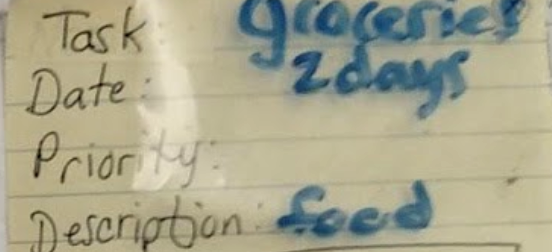 Task: groceries
Date: 2 days
Priority:
Description: food